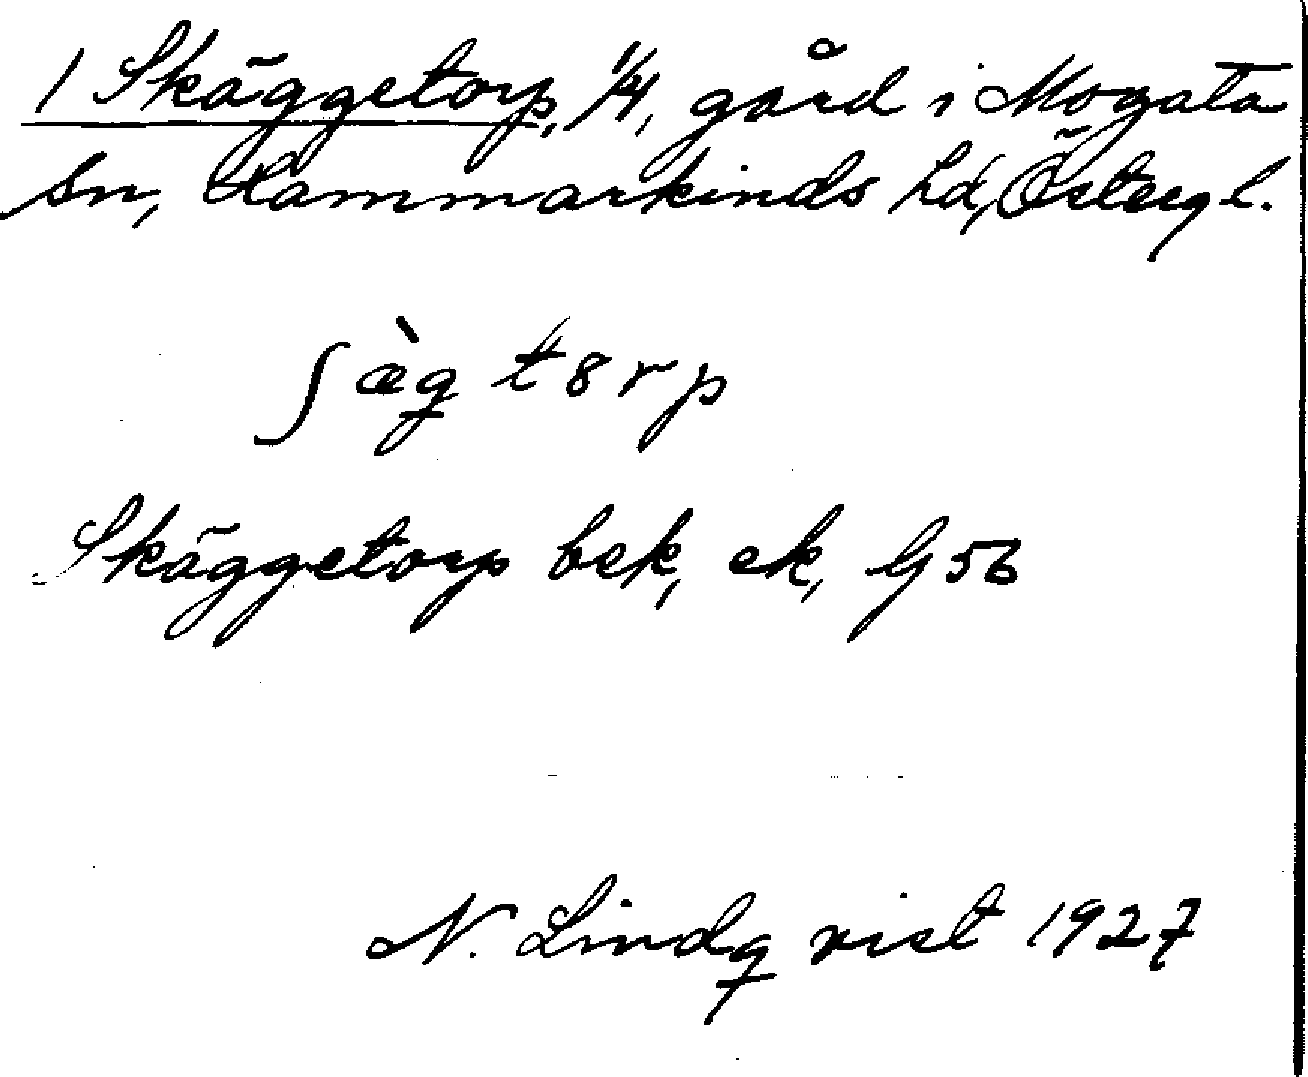 1 Skäggetorp, 1/4, gård i Mogata
Sn, Hammarkinds hd, Östergl.
ʃæ̀g t8rp
Skäggetorp bek, ek, G56
N. Lindqvist 1927